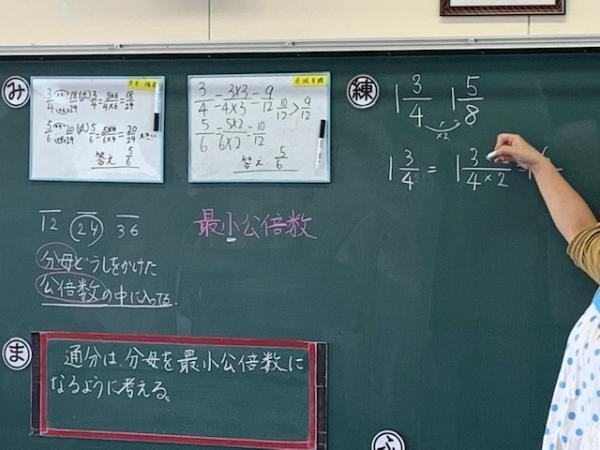 み
3/4 = 3×6/4×6 = 18/24
5/6 = 5×4/6×4 = 20/24
答え 5/6
3/4 = 3×3/4×3 = 9/12
10/12 > 9/12
5/6 = 5×2/6×2 = 10/12
答え 5/6
練
1 3/4 1 5/8
×2
1 3/4 = 1 3/4×2
12 24 36
最小公倍数
分母どうしをかけた
公倍数の中に入ってる。
ま
通分は、分母を最小公倍数に
なるように考える。
ふ